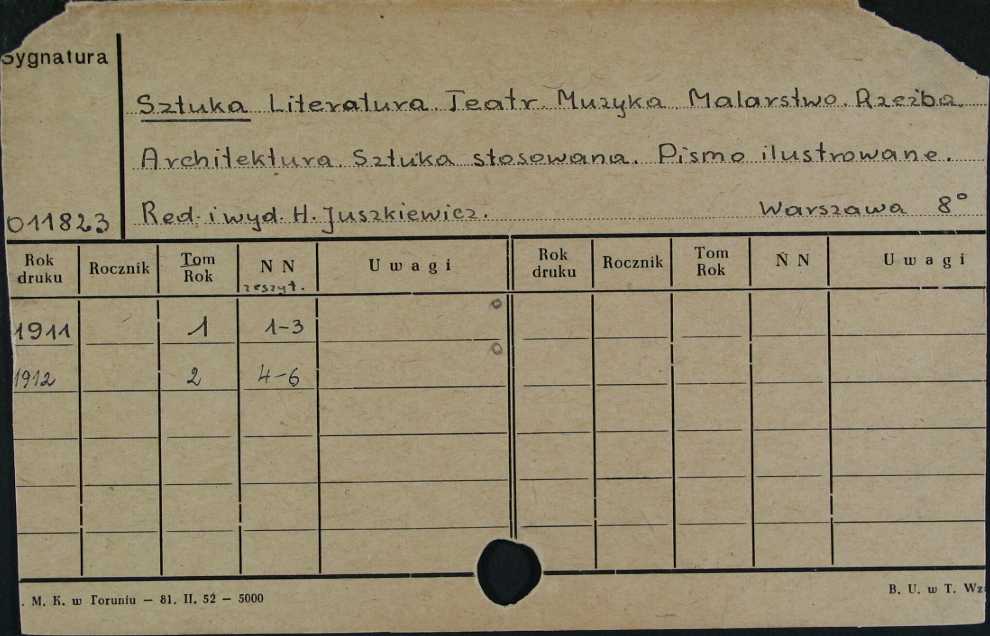 Sygnatura
Sztuka Literatura Teatr Muzyka Malarstwo. Rzeźba.
Architektura Sztuka stosowana. Pismo ilustrowane.
011823 Red. i wyd. H. Juszkiewicz. Warszawa 8°
Rok druku Rocznik Tom Rok N N zeszyt. Uwagi Rok druku Rocznik Tom Rok N N Uwagi
1911 1 1-3
1912 2 4-6
. M. K. w Toruniu — 81. II. 52 — 5000 B. U. w T.